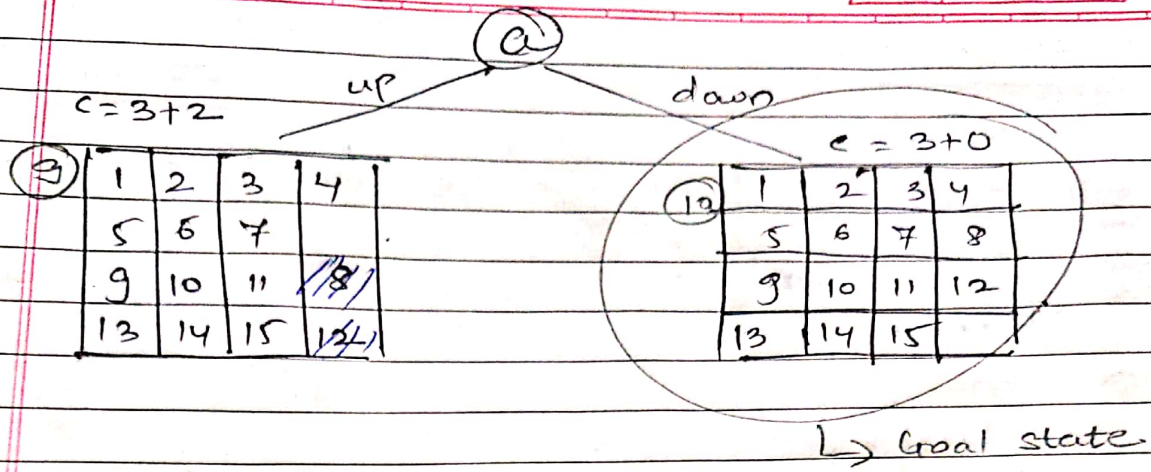 a
up
down
c = 3+2
c = 3+0
9 1 2 3 4
5 6 7
9 10 11 8
13 14 15 12
10 1 2 3 4
5 6 7 8
9 10 11 12
13 14 15
↳ Goal state